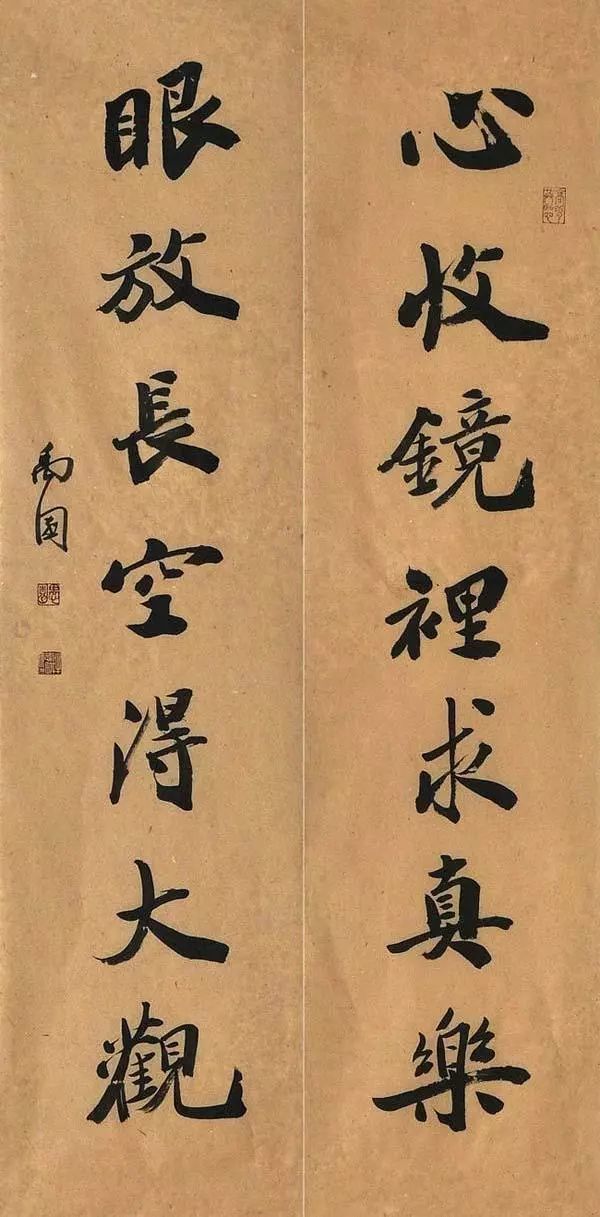 心收鏡裡求真樂
眼放長空得大觀